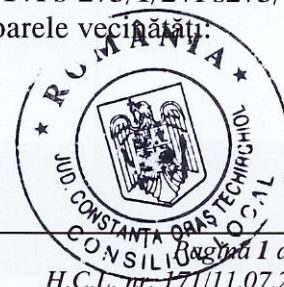 275/
oarele vecinătăți:
ROMÂNIA
JUD. CONSTANȚA ORAȘ TECHIRGHIOL
CONSILIU LOCAL
Pagina 1 d
H.C.L. nr. 171/11.07.2